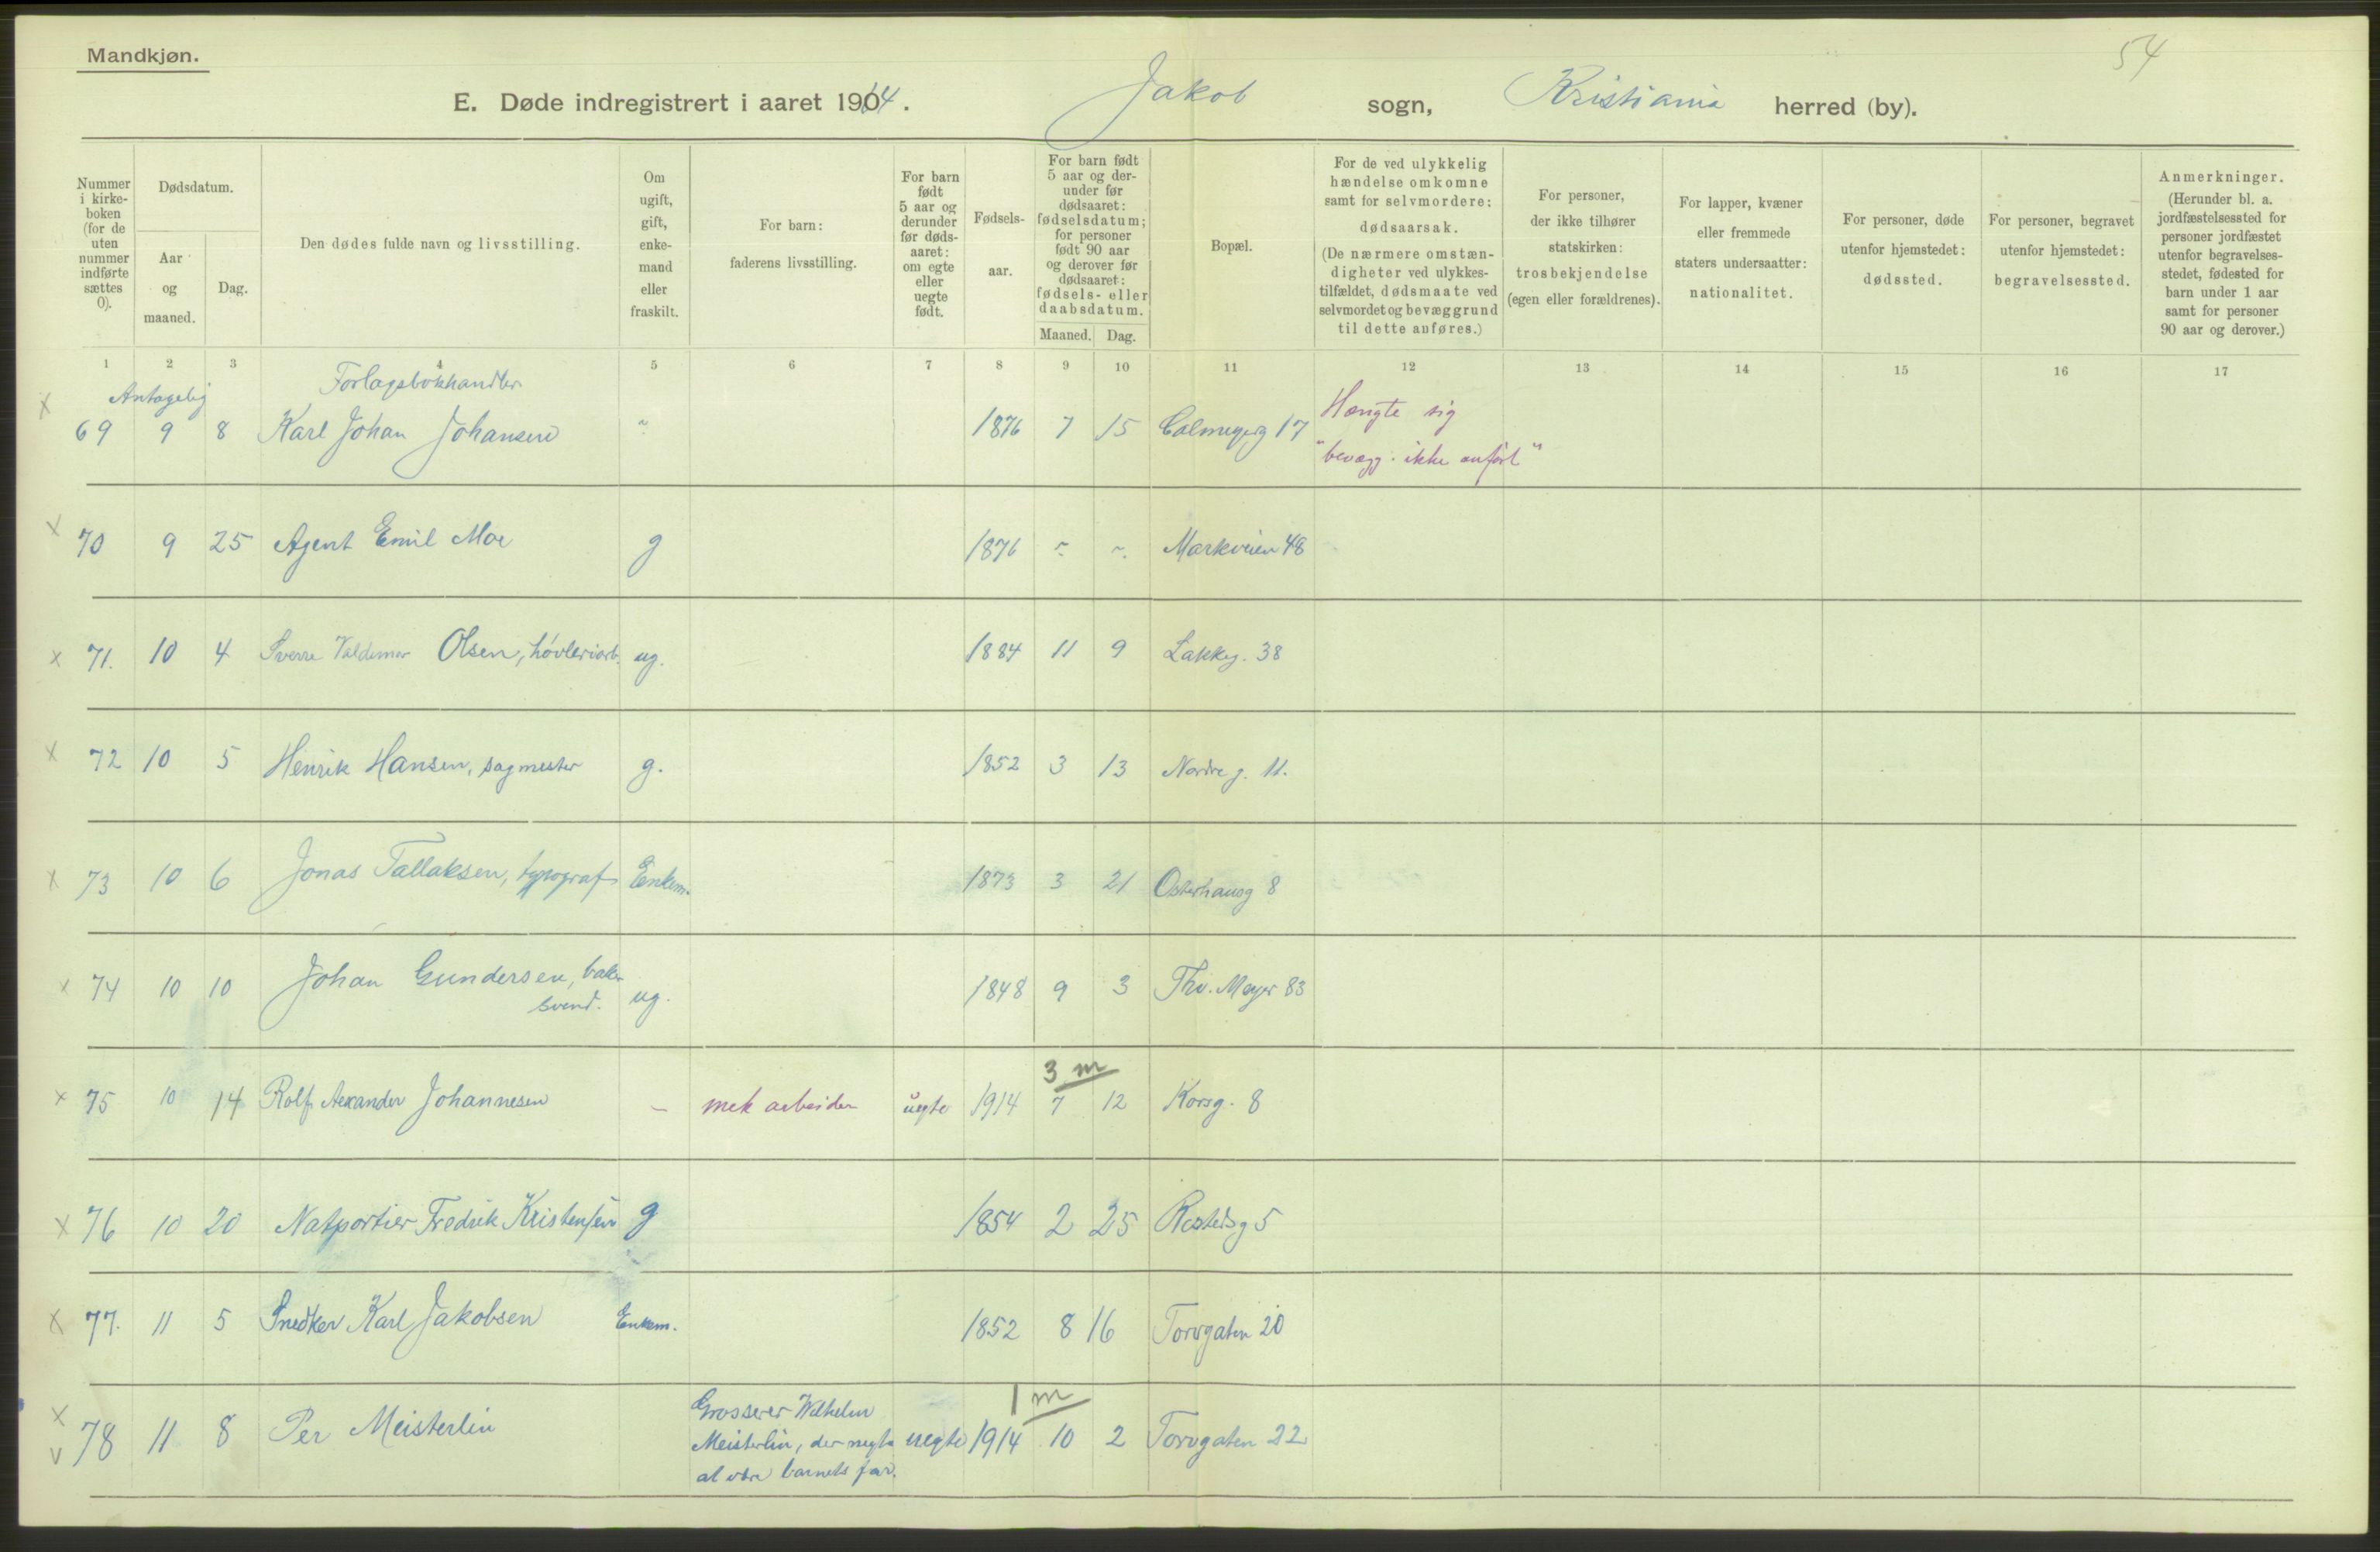 Mandkjøn.
54
E. Døde indregistrert i aaret 1914. Jakob sogn, Kristiania herred (by).
Nummer i kirke-boken (for de uten nummer indførte sættes 0).
Dødsdatum.
Aar og maaned.
Dag.
Den dødes fulde navn og livsstilling.
Om ugift, gift, enke-mand eller fraskilt.
For barn: faderens livsstilling.
For barn født 5 aar og derunder før døds-aaret: om egte eller uegte født.
Fødsels-aar.
For barn født 5 aar og der-under før dødsaaret: fødselsdatum; for personer født 90 aar og derover før dødsaaret: fødsels- eller daabsdatum.
Maaned. Dag.
Bopæl.
For de ved ulykkelig hændelse omkomne samt for selvmordere: dødsaarsak. (De nærmere omstæn-digheter ved ulykkes-tilfældet, dødsmaate ved selvmordet og bevæggrund til dette anføres.)
For personer, der ikke tilhører statskirken: trosbekjendelse (egen eller forældrenes).
For lapper, kvæner eller fremmede staters undersaatter: nationalitet.
For personer, døde utenfor hjemstedet: dødssted.
For personer, begravet utenfor hjemstedet: begravelsessted.
Anmerkninger. (Herunder bl. a. jordfæstelsessted for personer jordfæstet utenfor begravelses-stedet, fødested for barn under 1 aar samt for personer 90 aar og derover.)
1 2 3 4 5 6 7 8 9 10 11 12 13 14 15 16 17
Antagelig Forlagsbokhandler Hængte sig
x 69 9 8 Karl Johan Johansen ~ 1876 7 15 Calmeyerg 17 "bevægg. ikke anført"
x 70 9 25 Agent Emil Moe g 1876 ~ ~ Markveien 48
x 71. 10 4 Sverre Valdemar Olsen, høvleriarb. ug. 1884 11 9 Lakkeg. 38
x 72 10 5 Henrik Hansen, sagmester g. 1852 3 13 Nordre g. 11.
x 73 10 6 Jonas Tallaksen, typograf Enkem. 1873 3 21 Osterhausg 8
x 74 10 10 Johan Gundersen, baker svend. ug. 1848 9 3 Thv. Meyer 83
3 m
x 75 10 14 Rolf Alexander Johannesen – mek arbeider uegte 1914 7 12 Korsg. 8
x 76 10 20 Natportier Fredrik Kristensen g 1854 2 25 Rostedsg 5
x 77. 11 5 Snedker Karl Jakobsen Enkem. 1852 8 16 Torvgaten 20
1 m
x Grosserer Wilhelm
v 78 11 8 Per Meisterlin Meisterlin, der negter uegte 1914 10 2 Torvgaten 22
at være barnets far.